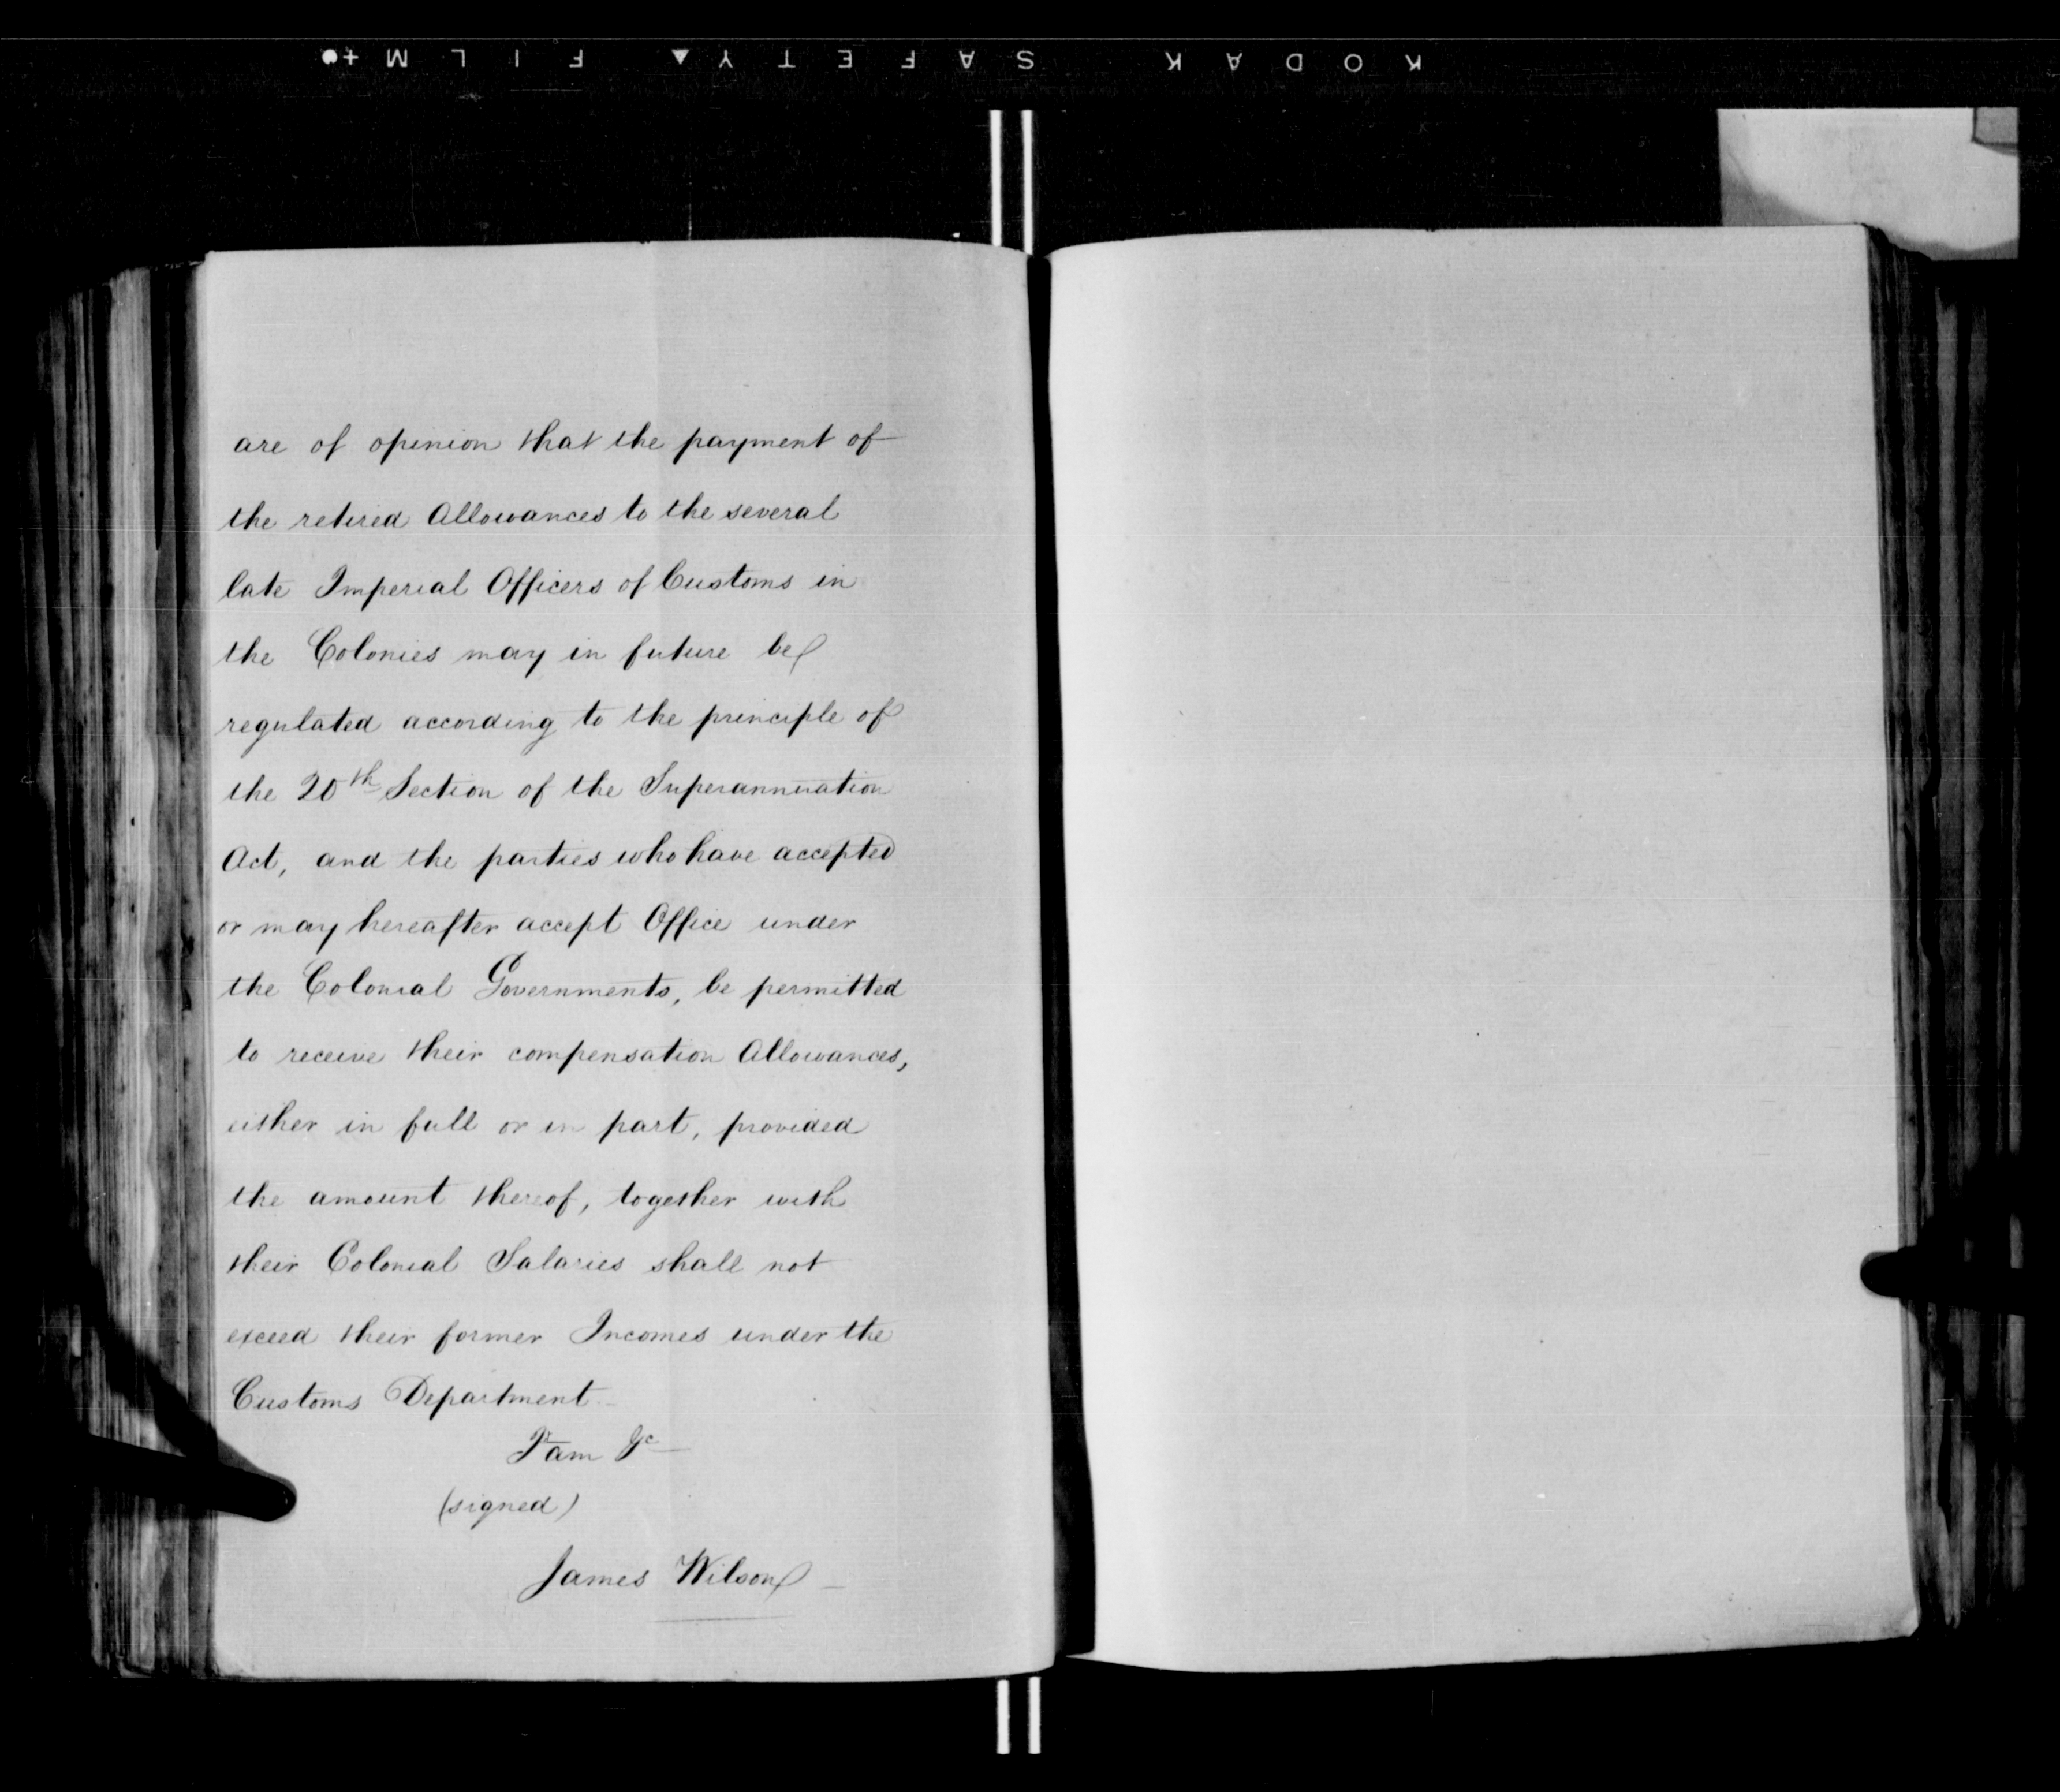 KODAK SAFETY▲ FILM+●
are of opinion that the payment of
the retired Allowances to the several
late Imperial Officers of Customs in
the Colonies may in future be
regulated according to the principle of
the 20th Section of the Superannuation
Act, and the parties who have accepted
or may hereafter accept Office under
the Colonial Governments, be permitted
to receive their compensation Allowances,
either in full or in part, provided
the amount thereof, together with
their Colonial Salaries shall not
exceed their former Incomes under the
Customs Department
I am &c
(signed)
James Wilson